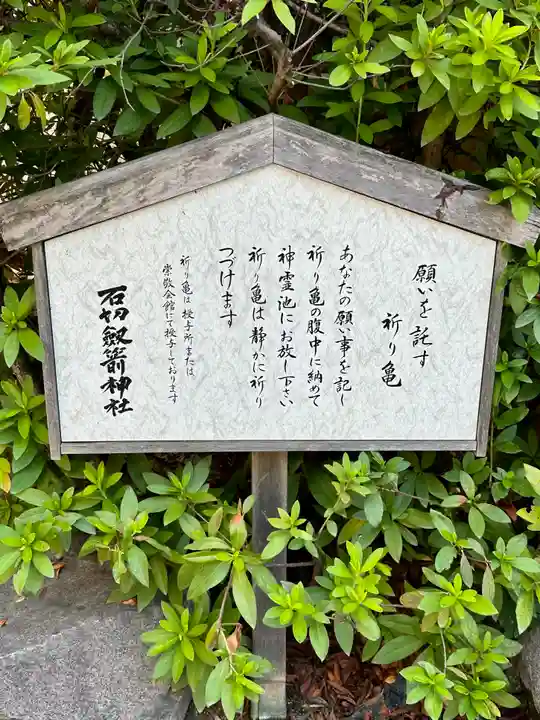 願いを託す
祈り亀
あなたの願い事を記し
祈り亀の腹中に納めて
神霊池にお放し下さい
祈り亀は静かに祈り
つづけます
祈り亀は授与所または
崇敬会館にて授与しております
石切劔箭神社